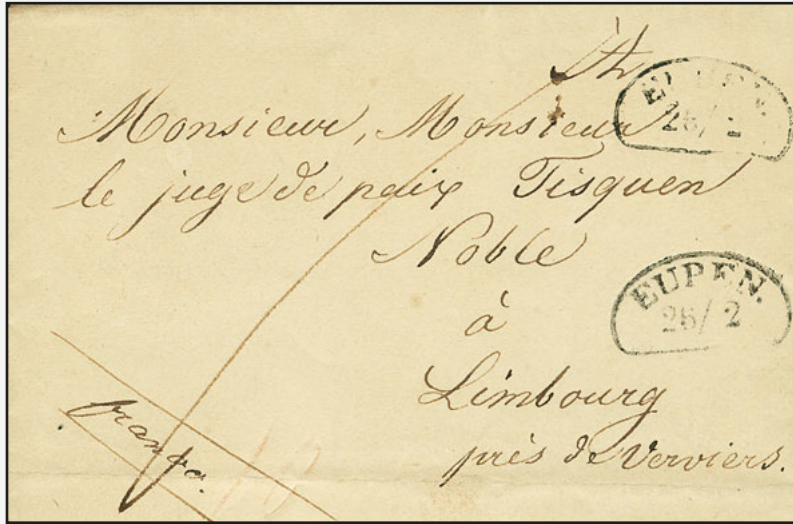 EUPEN.
26/2
Monsieur, Monsieur
le juge de paix Fisquen
Noble
à
EUPEN.
26/2
Limbourg
près de Verviers.
franco.